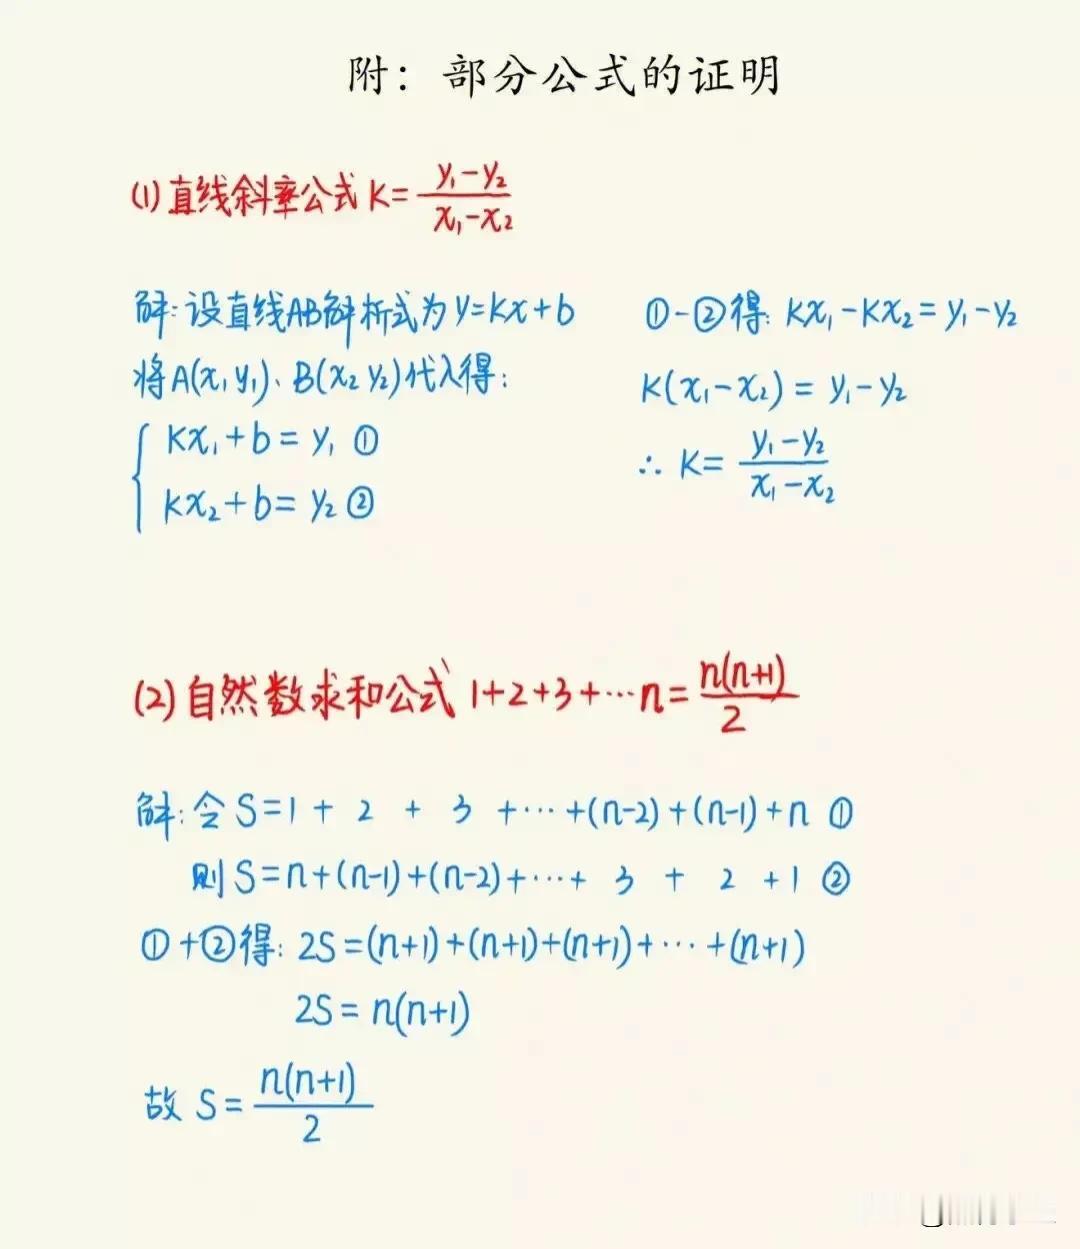 附：部分公式的证明
(1) 直线斜率公式 K=\frac{y₁-y₂}{x₁-x₂}
解:设直线AB解析式为 y=kx+b
将A(x₁ y₁)、B(x₂ y₂)代入得:
{ kx₁+b=y₁ ①
kx₂+b=y₂ ②
①-②得: kx₁-kx₂=y₁-y₂
K(x₁-x₂)=y₁-y₂
∴ K=\frac{y₁-y₂}{x₁-x₂}
(2) 自然数求和公式 1+2+3+…n=\frac{n(n+1)}{2}
解:令 S=1+2+3+…+(n-2)+(n-1)+n ①
则 S=n+(n-1)+(n-2)+…+3+2+1 ②
①+②得: 2S=(n+1)+(n+1)+(n+1)+…+(n+1)
2S=n(n+1)
故 S=\frac{n(n+1)}{2}